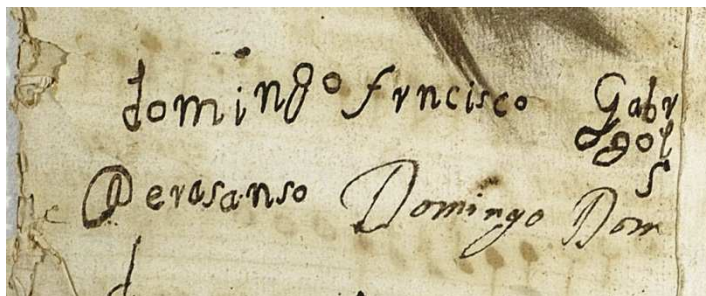 domingo frncisco Gabr
Perasanso Domingo Dom